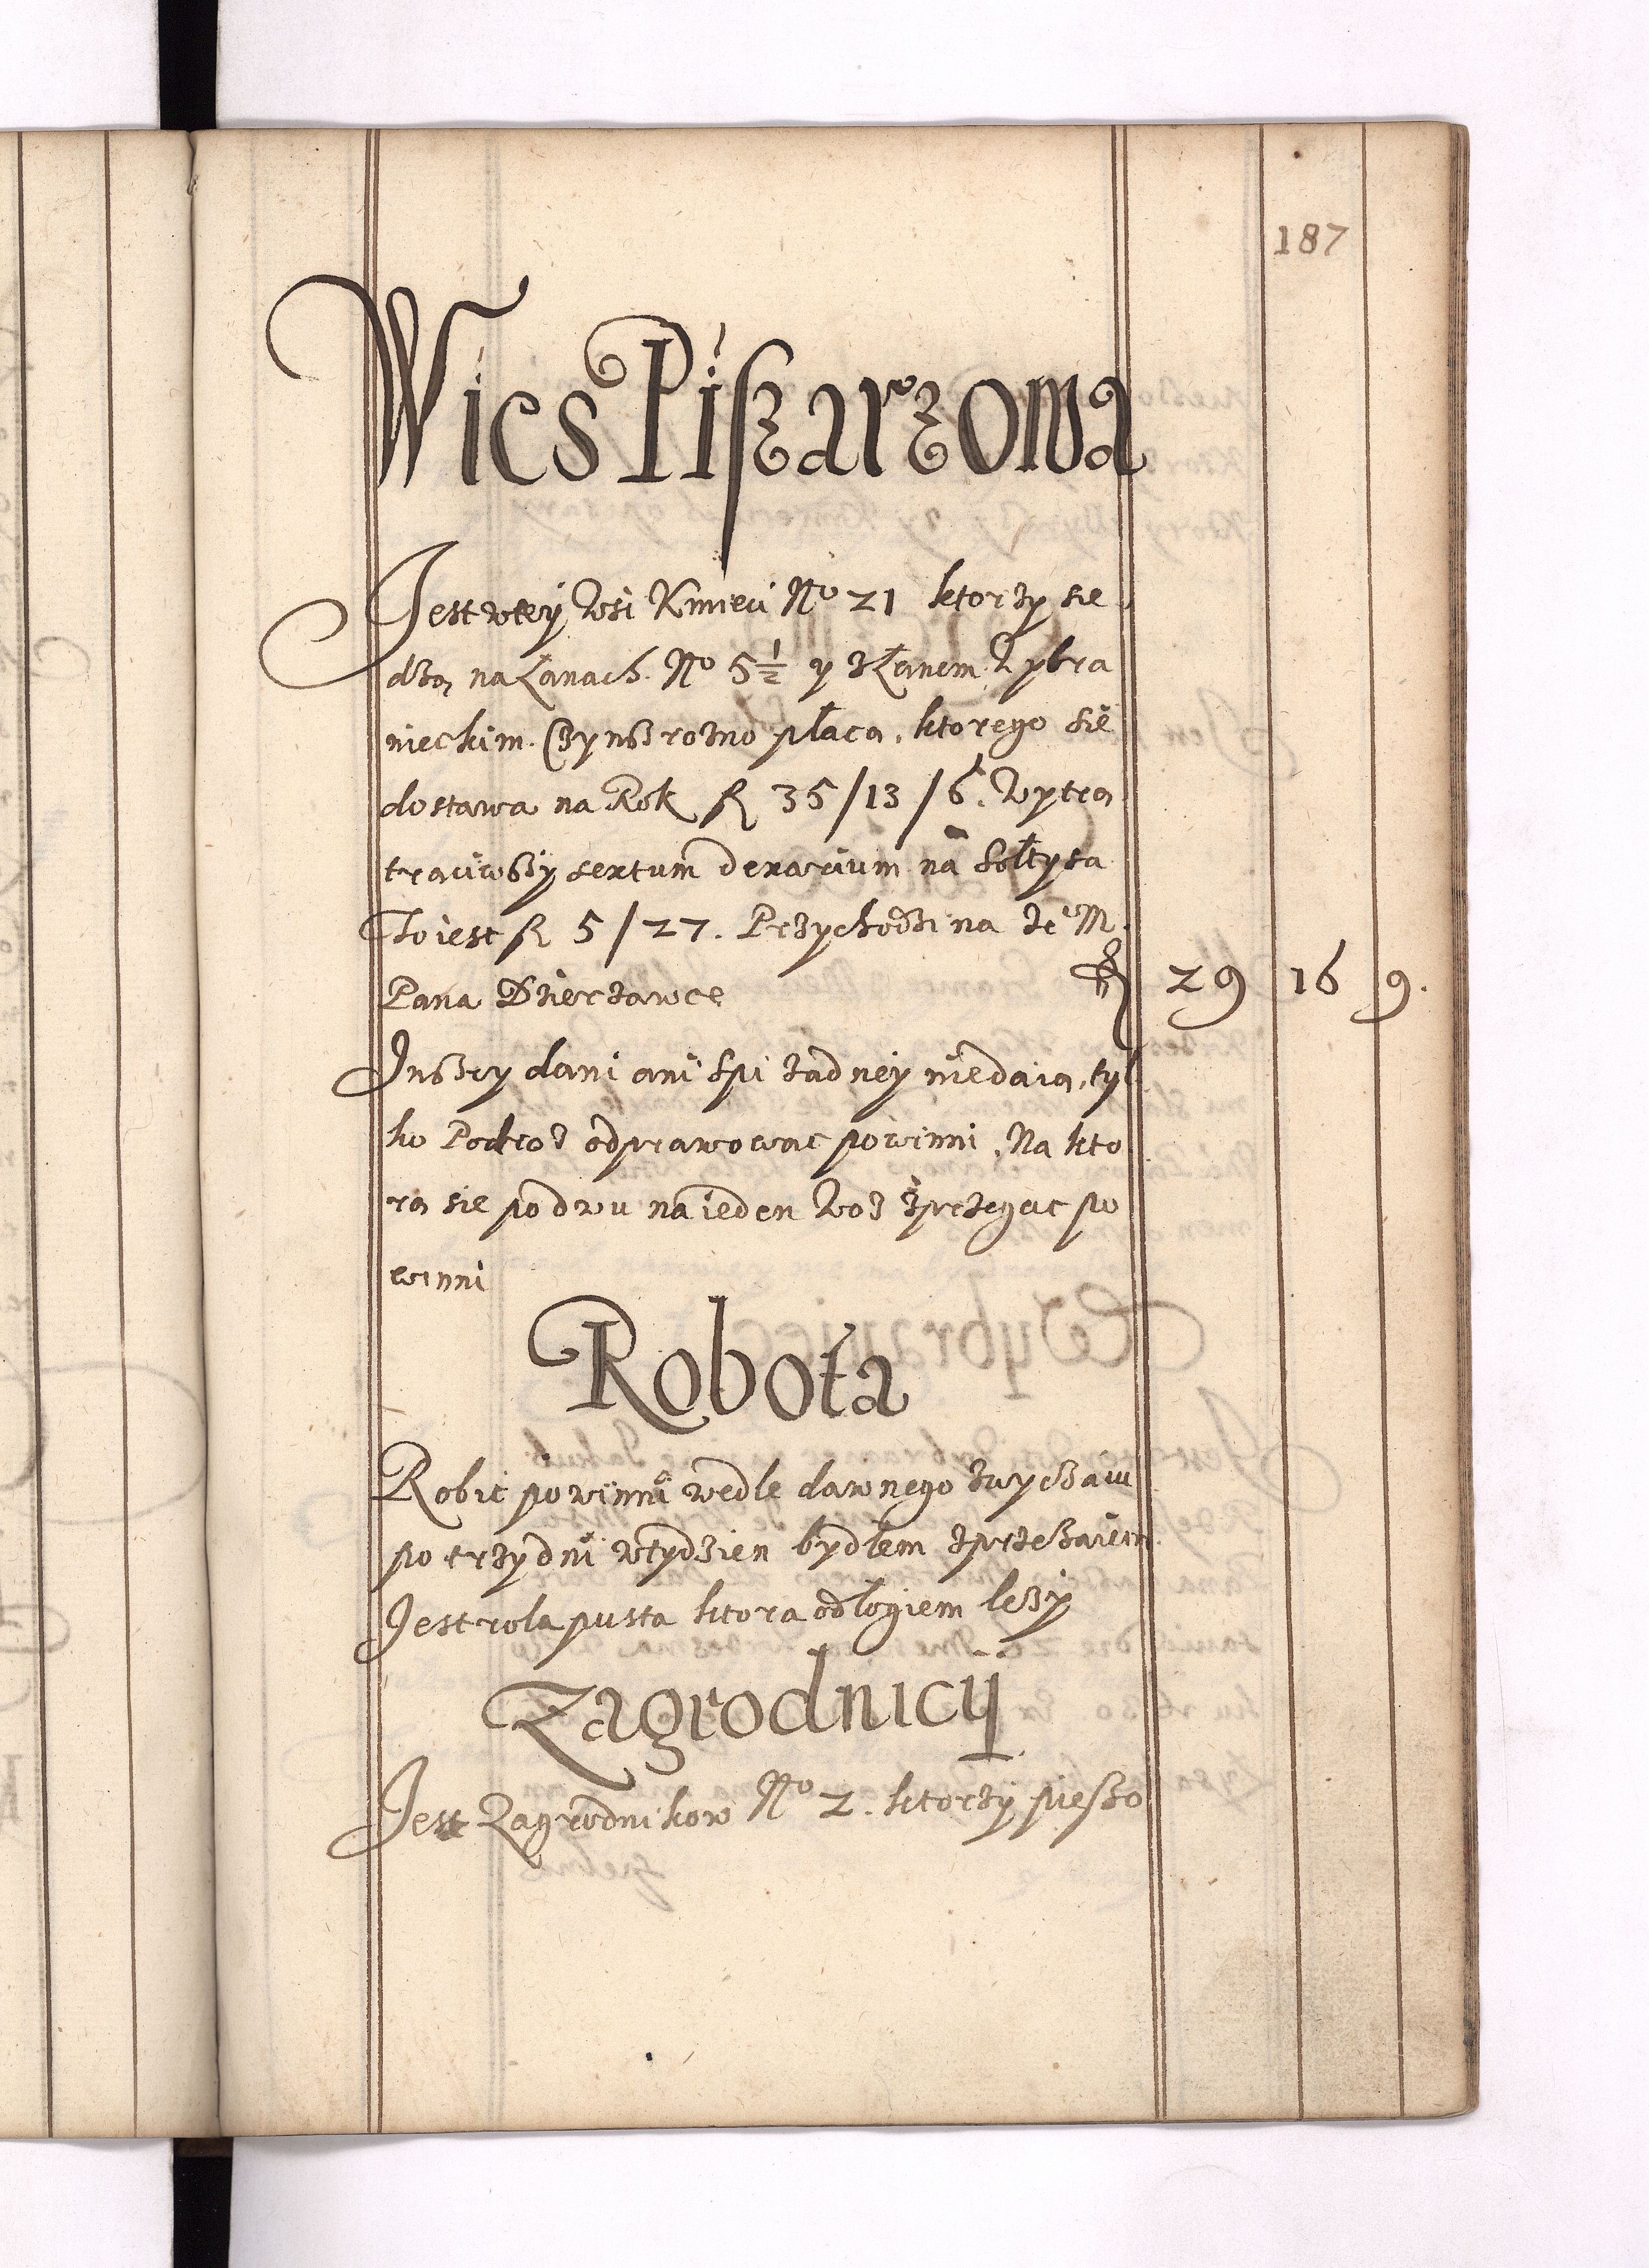 187
Wies Piszarzowa
Jest wtey Wsi Kmieci No 21 ktorzy sie
dzą na Łanach No 5 1/2 y złanem Wybra
nieckim. Czynsz rozno płacą, ktorego sie
dostawa na Rok fl 35/13/6. Wytrą
traciwszy sextum denarium na Sołtysa
To iest fl 5/27. Przychodzi na Je M.
Pana Dzierzawce fl 29 16 9.
Inszey dani ani Spi zadney niedaią, tyl
ko Podroz odprawowac powinni. Na kto
rą sie po dwu na ieden Woz zprzegac po
winni
Robota
Robic powinni wedle dawnego zwyczaiu
po trzy dni wtydzien bydłem zprzezaiem
Jest rola pusta ktora odłogiem lezy
Zagrodnicy
Jest Zagrodnikow No 2. ktorzy pieszo